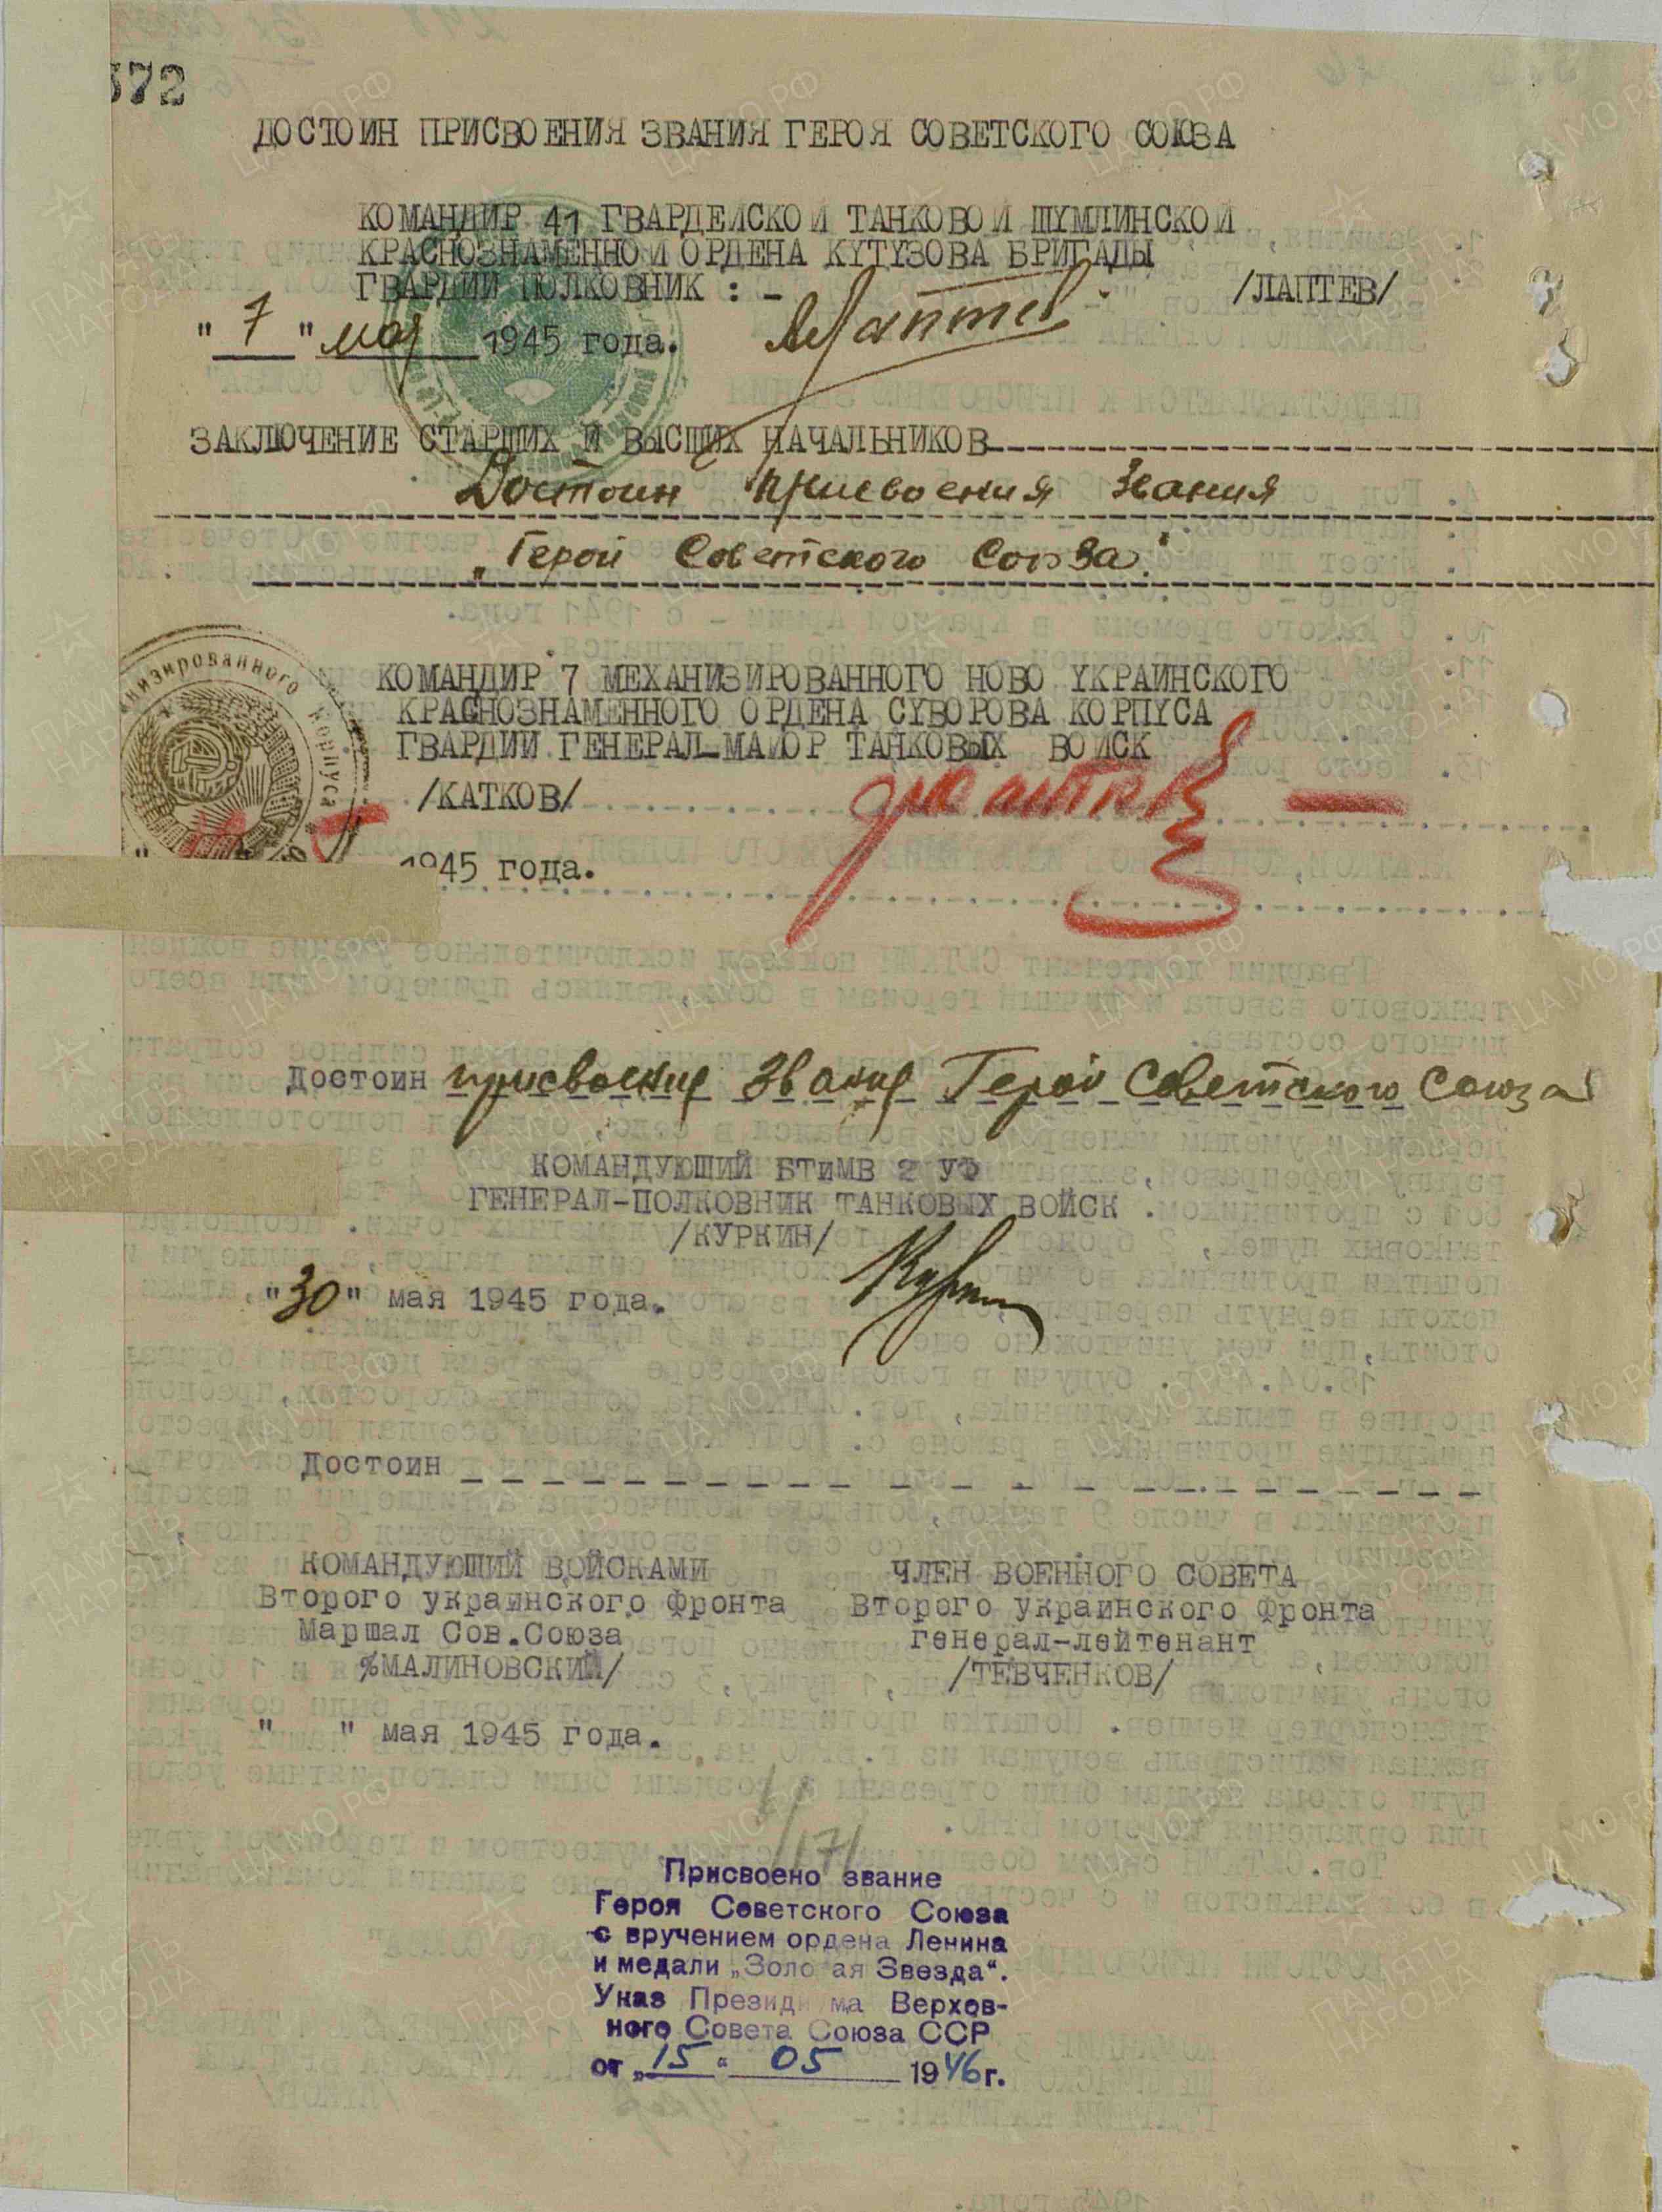 572
ДОСТОИН ПРИСВОЕНИЯ ЗВАНИЯ ГЕРОЯ СОВЕТСКОГО СОЮЗА
КОМАНДИР 41 ГВАРДЕЙСКОЙ ТАНКОВОЙ ШУМЛИНСКОЙ
КРАСНОЗНАМЕННОЙ ОРДЕНА КУТУЗОВА БРИГАДЫ
ГВАРДИИ ПОЛКОВНИК : - /ЛАПТЕВ/
"7" мая 1945 года. Лаптев
ЗАКЛЮЧЕНИЕ СТАРШИХ И ВЫСШИХ НАЧАЛЬНИКОВ
Достоин присвоения звания
„Герой Советского Союза"
КОМАНДИР 7 МЕХАНИЗИРОВАННОГО НОВО УКРАИНСКОГО
КРАСНОЗНАМЕННОГО ОРДЕНА СУВОРОВА КОРПУСА
ГВАРДИИ ГЕНЕРАЛ-МАЙОР ТАНКОВЫХ ВОЙСК
/КАТКОВ/
1945 года.
Достоин присвоения звания Герой Советского Союза
КОМАНДУЮЩИЙ БТиМВ 2 УФ
ГЕНЕРАЛ-ПОЛКОВНИК ТАНКОВЫХ ВОЙСК.
/КУРКИН/
"30" мая 1945 года.
Достоин
КОМАНДУЮЩИЙ ВОЙСКАМИ ЧЛЕН ВОЕННОГО СОВЕТА
Второго украинского фронта Второго украинского фронта
Маршал Сов.Союза генерал-лейтенант
%МАЛИНОВСКИЙ/ /ТЕВЧЕНКОВ/
" " мая 1945 года.
Присвоено звание
Героя Советского Союза
с вручением ордена Ленина
и медали „Золотая Звезда".
Указ Президиума Верхов-
ного Совета Союза ССР
от „15" 05 1946 г.